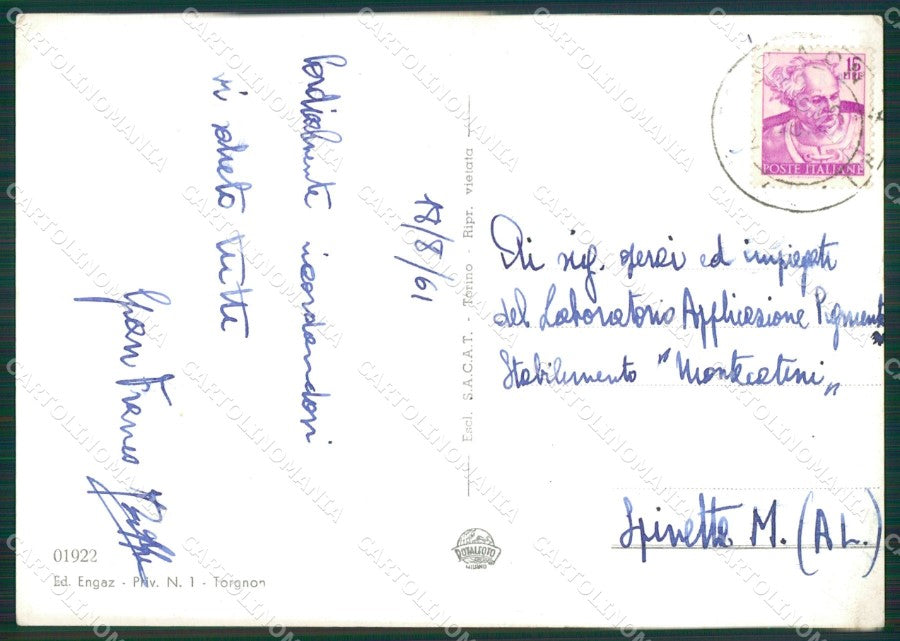 Cordialmente ricordandovi
vi saluto tutti
Gian Franco
18/8/61
01922
Ed. Engaz - Priv. N. 1 - Torgnon
Escl. S.A.C.A.T. - Torino - Ripr. vietata
ROTALFOTO
MILANO
15
LIRE
POSTE ITALIANE
Ai sig. operai ed impiegati
del Laboratorio Applicazione Pigmenti
Stabilimento "Montecatini"
Spinetta M. (AL.)
CARTOLINOMANIA